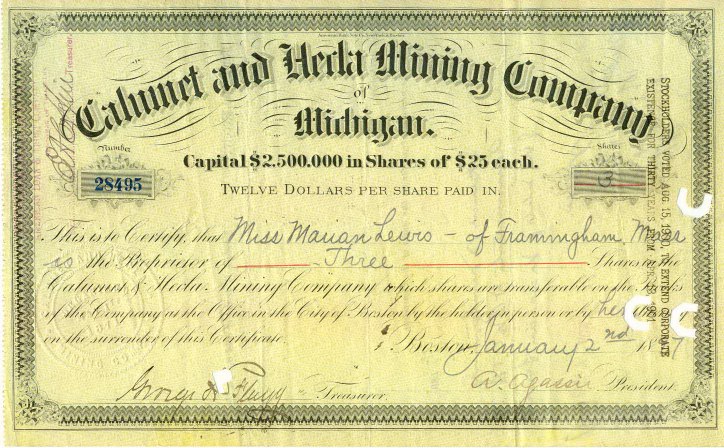 Calumet and Hecla Mining Company
of
Michigan.
Capital $2.500.000 in Shares of $25 each.
Number
28495
Shares
3
TWELVE DOLLARS PER SHARE PAID IN.
This is to Certify, that Miss Marian Lewis - of Framingham, Mass
is the Proprietor of Three Shares in the
Calumet & Hecla Mining Company which shares are transferable on the Books
of the Company at the Office in the City of Boston by the holder in person or by her
on the surrender of this Certificate.
Boston, January 2nd 18 7
A. Agassiz President.
Treasurer.
STOCKHOLDERS VOTED AUG. 15, 1900, TO EXTEND CORPORATE
EXISTENCE FOR THIRTY YEARS FROM